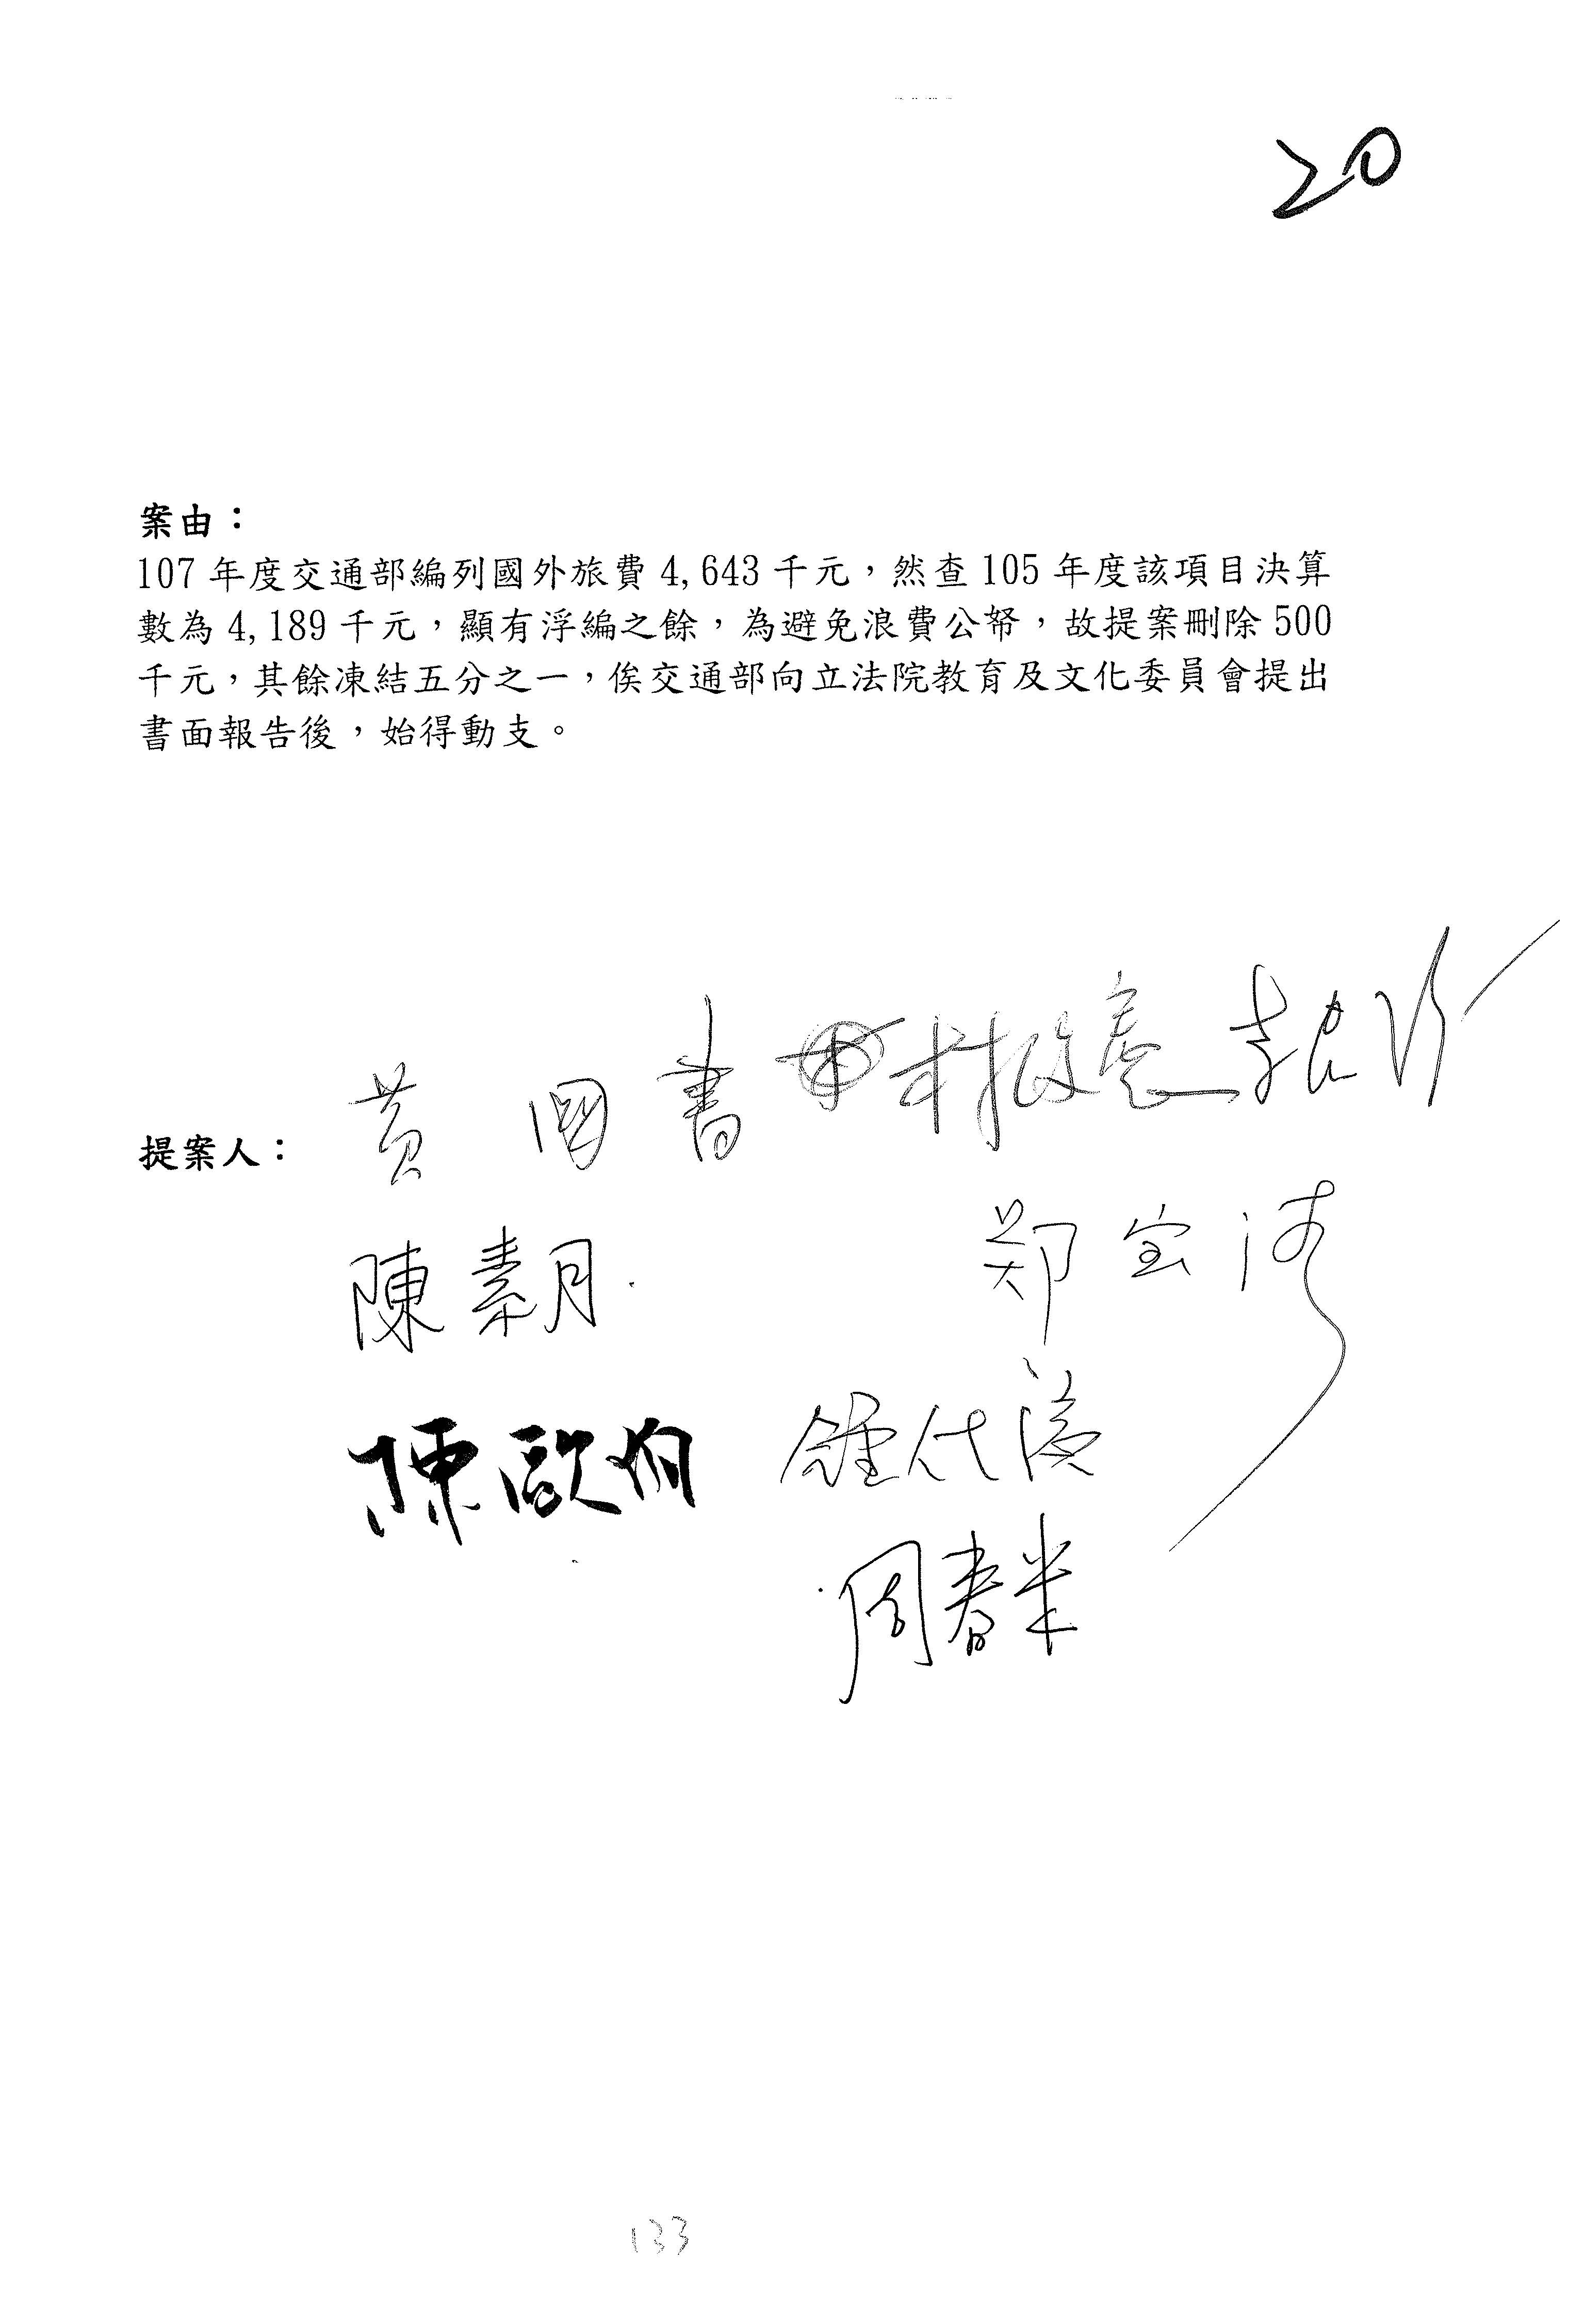 20
案由：
107 年度交通部編列國外旅費 4,643 千元，然查 105 年度該項目決算
數為 4,189 千元，顯有浮編之餘，為避免浪費公帑，故提案刪除 500
千元，其餘凍結五分之一，俟交通部向立法院教育及文化委員會提出
書面報告後，始得動支。
提案人：
黃國書
陳素月
鄭宝清
陳歐珀
鍾佳濱
周春米
133